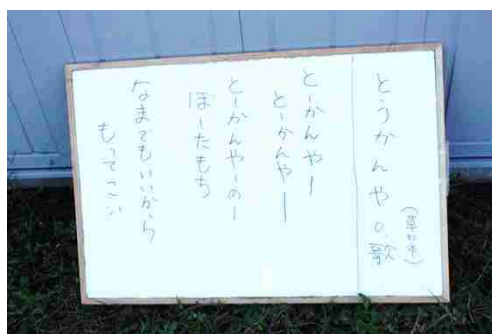 とうかんやの歌
(草加市)
とーかんやー
とーかんやー
とーかんやーのー
ぼーたもち
なまでもいいから
もってこい